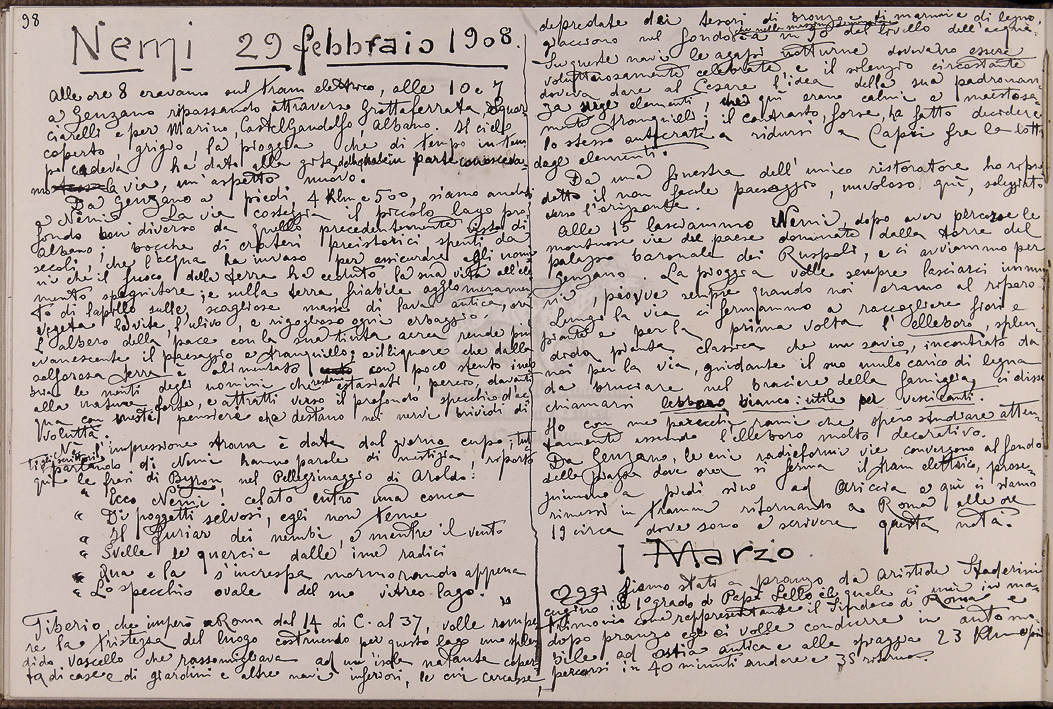 98
Nemi 29 febbraio 1908.
Alle ore 8 eravamo sul tram elettrico, alle 10 e 7
a Genzano ripassando attraverso Grottaferrata, Squar-
ciarelli e per Marino, Castelgandolfo, Albano. Il cielo
coperto, grigio, la pioggia che di tempo in tem
po cadeva ha dato alla gita in parte conosceva-
mo la via, un'aspetto nuovo.
Da Genzano a piedi, 4 Km e 500, siamo andati
a Nemi. La via costeggia il piccolo lago pro-
fondo ben diverso da quello precedentemente visto di
Albano; bocche di crateri preistorici spenti da
secoli, che l'acqua ha invaso per assicurare agli uomi
ni che il fuoco della terra ha ceduto la sua vita all'ele
mento spegnitore; e sulla terra friabile agglomeramen
to di lapillo sulle scogliose masse di lava antica, or
vegeta la vite, l'ulivo, e rigoglioso ogni erbaggio.
L'albero della pace con la sua tinta aerea rende più
evanescente il paesaggio e tranquillo; e il liquore che dalla
solforosa terra è alimentato con poco stento ineb
bria le menti degli uomini che estasiati, perciò, davanti
alla natura forte, e attratti verso il profondo specchio d'ac
qua con pensieri che destano nei nervi brividi di
voluttà.
Nell' impressione strana è data dal giorno cupo; tut
ti gli scrittori parlando di Nemi hanno parole di mestizia, riporto
qui le frasi di Byron nel Pellegrinaggio di Aroldo:
" Ecco Nemi! celato entro una conca
" Di poggetti selvosi, egli non teme
" Il furiar dei nembi, e mentre il vento
" Svelle le quercia dalle ime radici
" Qua e la s'increspa mormorando appena
" Lo specchio ovale del suo vitreo lago. "
Tiberio che imperò a Roma dal 14 di C. al 37, volle rompe
re la tristezza del luogo costruendo per questo lago uno splen
dido vascello che rassomigliava ad un'isola natante, coper
ta di case e di giardini e altre navi inferiori, le cui carcasse,
depredate dai tesori di bronzo, di marmi e di legno,
giacciono nel fondo a m 30 dal livello dell'acqua.
Su queste navi le agapi notturne dovevano essere
voluttuosamente celebrate e il silenzio circostante
doveva dare al Cesare l'idea della sua padronan-
za sugli elementi, che qui erano calmi e maestosa
mente tranquilli; il contrasto, forse, ha fatto decidere
lo stesso autocrate a ridursi a Capri fra la lotta
degli elementi.
Da una finestra dell'unico ristoratore ho ripro
dotto il non facile paesaggio, nuvoloso qui, soleggiato
verso l'orizzonte.
Alle 15 lasciammo Nemi, dopo aver percorse le
montuose vie del paese dominate dalla torre del
palazzo baronale dei Ruspoli, e ci avviammo per
Genzano. La pioggia volle sempre lasciarci immu
ni, piovve sempre quando noi eramo al riparo.
Lungo la via ci fermammo a raccogliere fiori e
piante e per la prima volta l'elleboro, splen
dida pianta classica che un savio, incontrato da
noi per la via, guidante il suo mulo carico di legna
da bruciare nel braciere della famiglia, ci disse
chiamarsi bianco: utile per vescicanti.
Ho con me parecchi rami che spero studiare atten
tamente essendo l'elleboro molto decorativo.
Da Genzano, le cui radieformi vie convergono al fondo
della piazza dove ora si ferma il tram elettrico, prose
guimmo a piedi sino ad Ariccia e qui ci siamo
rimessi in tramm ritornando a Roma alle ore
19 circa dove sono a scrivere questa nota.
1 Marzo.
Oggi siamo stati a pranzo da Aristide Staderini
cugino in 1° grado di Papà Lello il quale ci unì in ma
trimonio come rappresentante il Sindaco di Roma e
dopo pranzo egli ci volle condurre in automo
bile ad Ostia antica e alla spiaggia 23 Km
percorsi in 40 minuti andare e 35 ritorno.